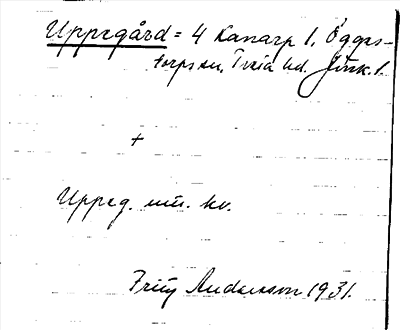 Uppegård = 4 Kanarp 1, Öggес-
torps sn, Tveta hd. Jönk. l.
+
Uppeg. mn. kv.
Fritz Andersson 1931.